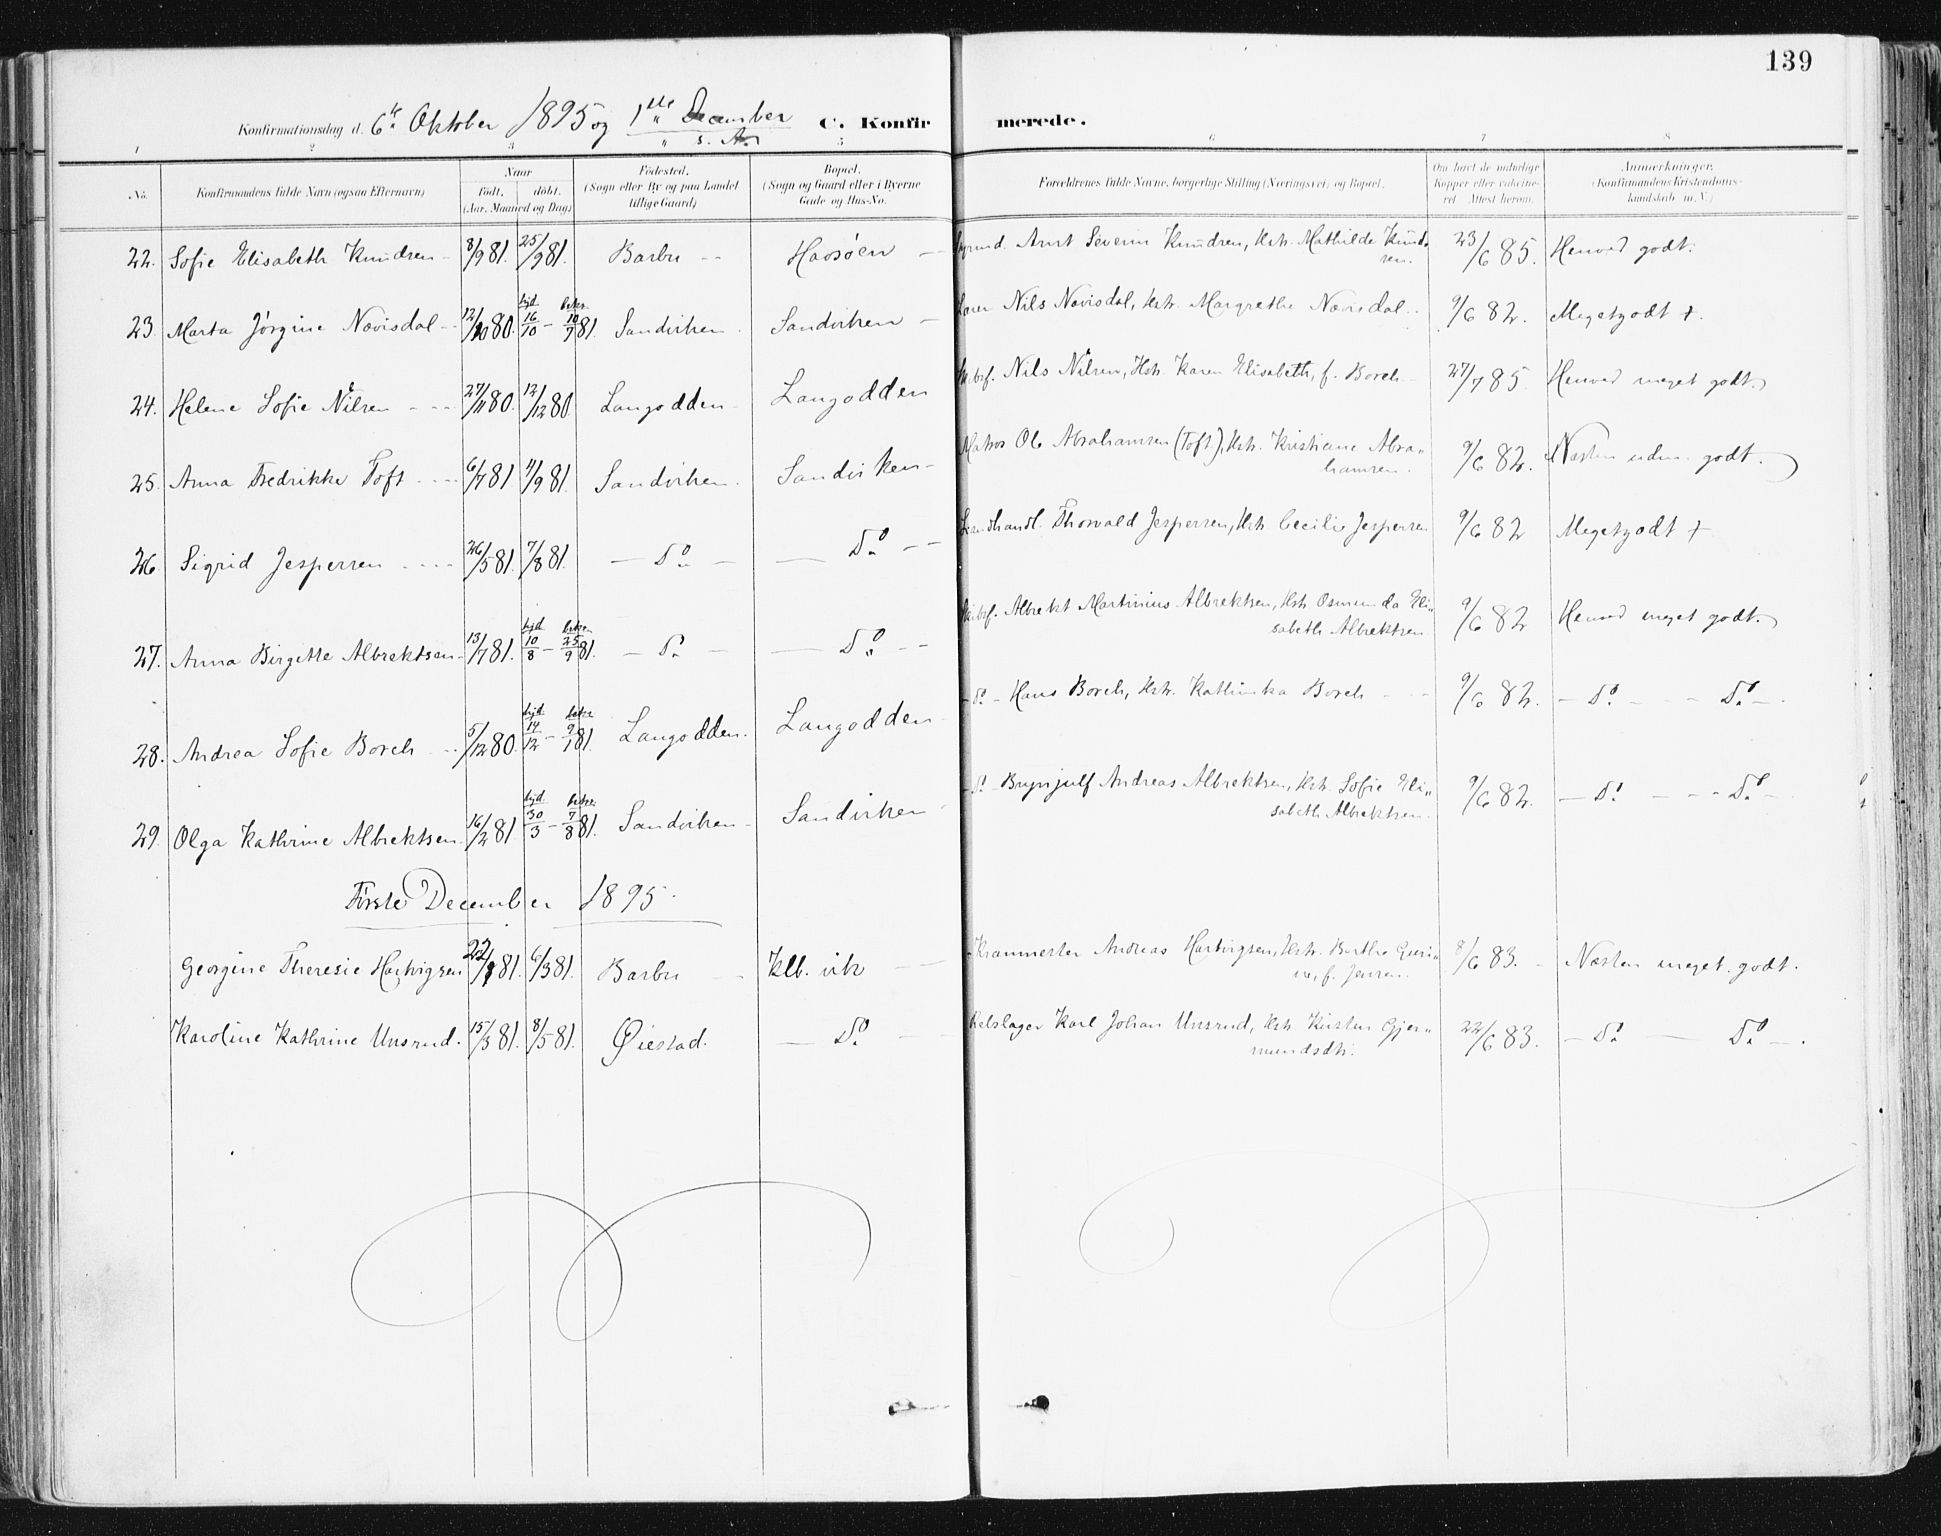 139
Konfirmationsdag d. 6te Oktober 1895 og 1ste December s. A. C. Konfirmerede.
1 2 3 5 6 7 8
No. Konfirmandens fulde Navn (ogsaa Efternavn) Naar født. døbt. (Aar, Maaned og Dag) Fødested. (Sogn eller By og paa Landet tillige Gaard) Bopæl. (Sogn og Gaard eller i Byerne Gade og Hus-No. Forældrenes fulde Navne, borgerlige Stilling (Næringsvei) og Bopæl. Om havt de naturlige Kopper eller vaccineret. Attest herom. Anmærkninger. (Konfirmandens Kristendomskundskab m. V.)
22. Sofie Elisabeth Knudsen 8/9 81. 25/9 81. Barbu Havsøen Arnt Severin Knudsen, Hstr. Mathilde Knudsen. 23/6 85. Henved godt.
23. Marta Jørgine Nævisdal 12/10 80. hjd. 16/10 - bekr. 10/7 81. Sandviken Sandviken Nils Nævisdal, Hstr. Margrethe Nævisdal 9/6 82. Megetgodt +.
24. Helene Sofie Nilsen 27/11 80. 12/12 80. Langodden Langodden Nils Nilsen, Hstr. Karen Elisabeth, f. Borch 27/7 85. Henved meget godt.
25. Anna Fredrikke Toft 6/7 81 4/9 81. Sandviken. Sandviken Matros Ole Abrahamsen (Toft), Hstr. Kristiane Abrahamsen. 9/6 82. Næsten udm. godt.
26. Sigrid Jespersen 26/5 81. 7/8 81. Do Do Thorvald Jespersen, Hstr. Cecilie Jespersen 9/6 82 Megetgodt +
27. Anna Birgitte Albrektsen 13/7 81. hjd. 10/8 - bekr. 25/9 81. Do Do Albrekt Martinius Albrektsen, Hstr. Osmunda Elisabeth Albrektsen 9/6 82 Henved meget godt.
28. Andrea Sofie Borch 5/12 80. hjd. 14/12 - bekr. 9/1 81. Langodden. Langodden Do Hans Borch, Hstr. Kathinka Borch 9/6 82. Do Do
29. Olga Kathrine Albrektsen 16/2 81. hjd. 30/3 - bekr. 7/8 81. Sandviken Sandviken Do Brynjulf Andreas Albrektsen, Hstr. Sofie Elisabeth Albrektsen. 9/6 82. Do Do
Første December 1895.
Georgine Theresie Hartvigsen 22/1 81. 6/3 81. Barbu Klb. vik Andreas Hartvigsen, Hstr. Berthe Gurine, f. Jensen. 8/6 83. Næsten meget godt.
Karoline Kathrine Unsrud. 15/3 81. 8/5 81. Øiestad. Do Rebslager Karl Johan Unsrud, Hstr. Kirsten Gjermundsdtr. 22/6 83. Do Do